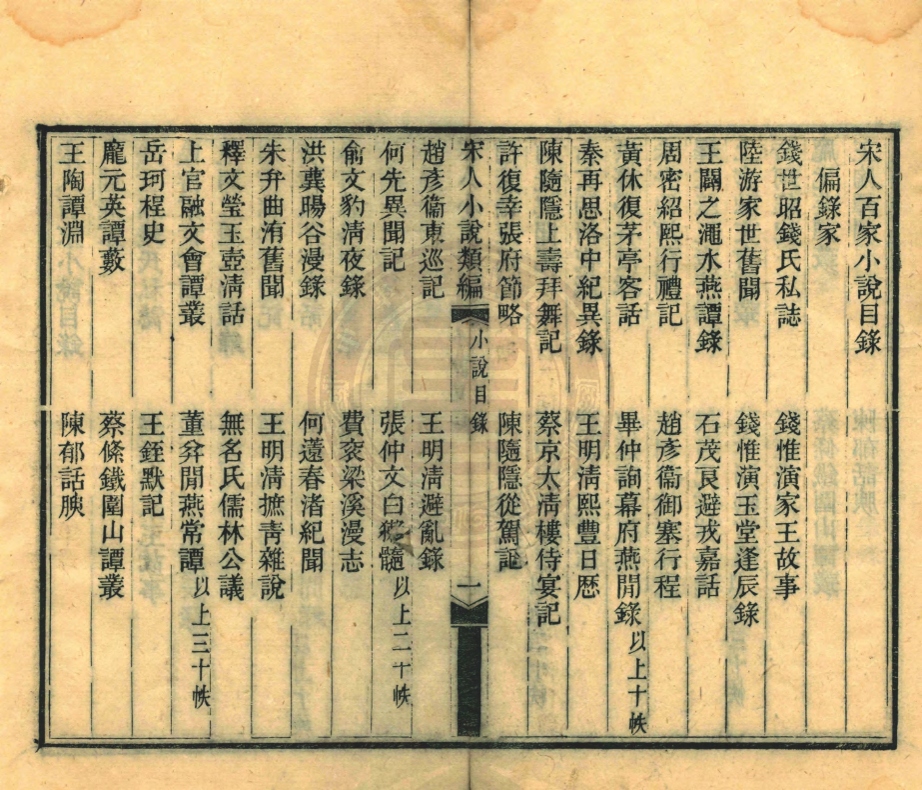 宋人百家小說目錄
偏錄家
錢世昭錢氏私誌　錢惟演家王故事
陸游家世舊聞　錢惟演玉堂逢辰錄
王闢之澠水燕譚錄　石茂良避戎嘉話
周密紹熙行禮記　趙彥衞御塞行程
黃休復茅亭客話　畢仲詢幕府燕閒錄以上十帙
秦再思洛中紀異錄　王明淸熙豐日歷
陳隨隱上壽拜舞記　蔡京太淸樓侍宴記
許復幸張府節略　陳隨隱從駕記
宋人小說類編　小說目錄　一
趙彥衞東巡記　王明淸避亂錄
何先異聞記　張仲文白獺髓以上二十帙
俞文豹淸夜錄　費袞梁溪漫志
洪巽暘谷漫錄　何薳春渚紀聞
朱弁曲洧舊聞　王明淸摭靑雜說
釋文瑩玉壺淸話　無名氏儒林公議
上官融友會譚叢　董弅閒燕常譚以上三十帙
岳珂桯史　王銍默記
龐元英譚藪　蔡絛鐵圍山譚叢
王陶譚淵　陳郁話腴